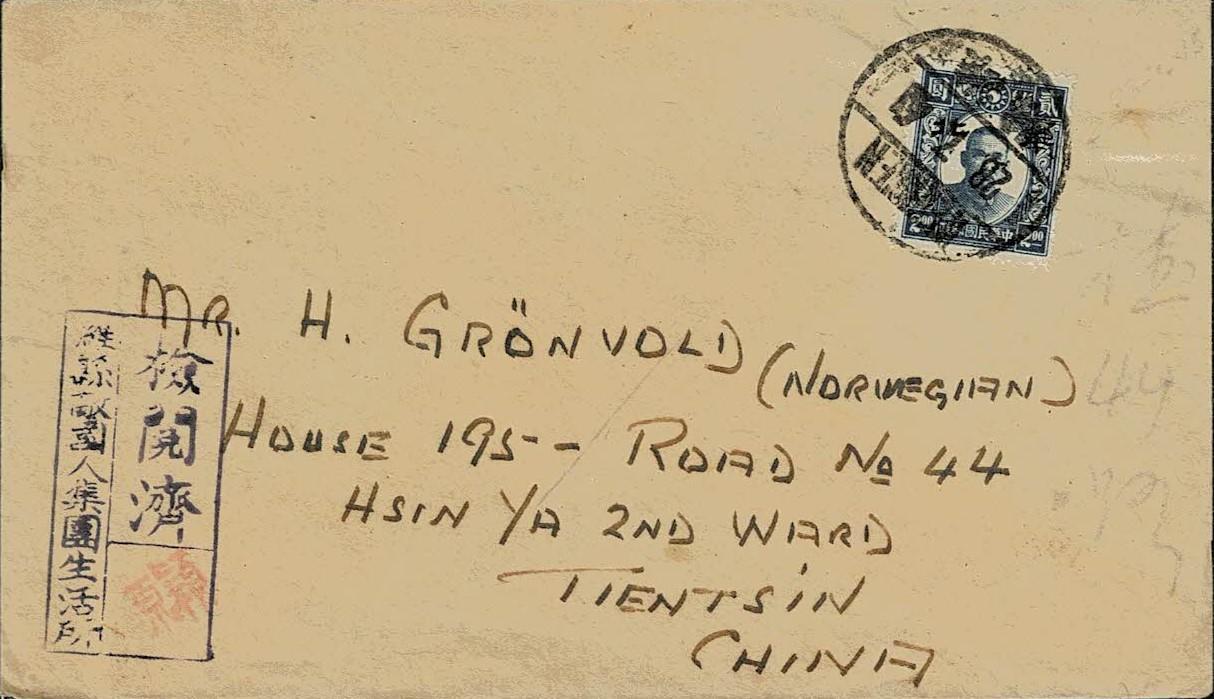 貳 圓
2.00 2.00
28
MR. H. GRÖNVOLD (NORWEGIAN)
HOUSE 195 - ROAD No 44
HSIN YA 2ND WARD
TIENTSIN
CHINA
檢閱濟
濰縣敵國人集團生活所